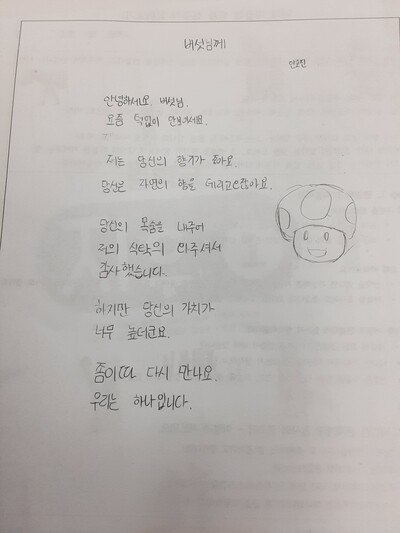 버섯님께
안녕하세요 버섯님.
요즘 덕없이 안보이세요.
저는 당신의 향기가 좋아요.
당신은 자연의 향을 데리고 오잖아요.
당신의 목숨을 내주어
저의 식탁의 와주셔서
감사했습니다.
하지만 당신의 가치가
너무 높더군요.
좀이따 다시 만나요.
우리는 하나입니다.